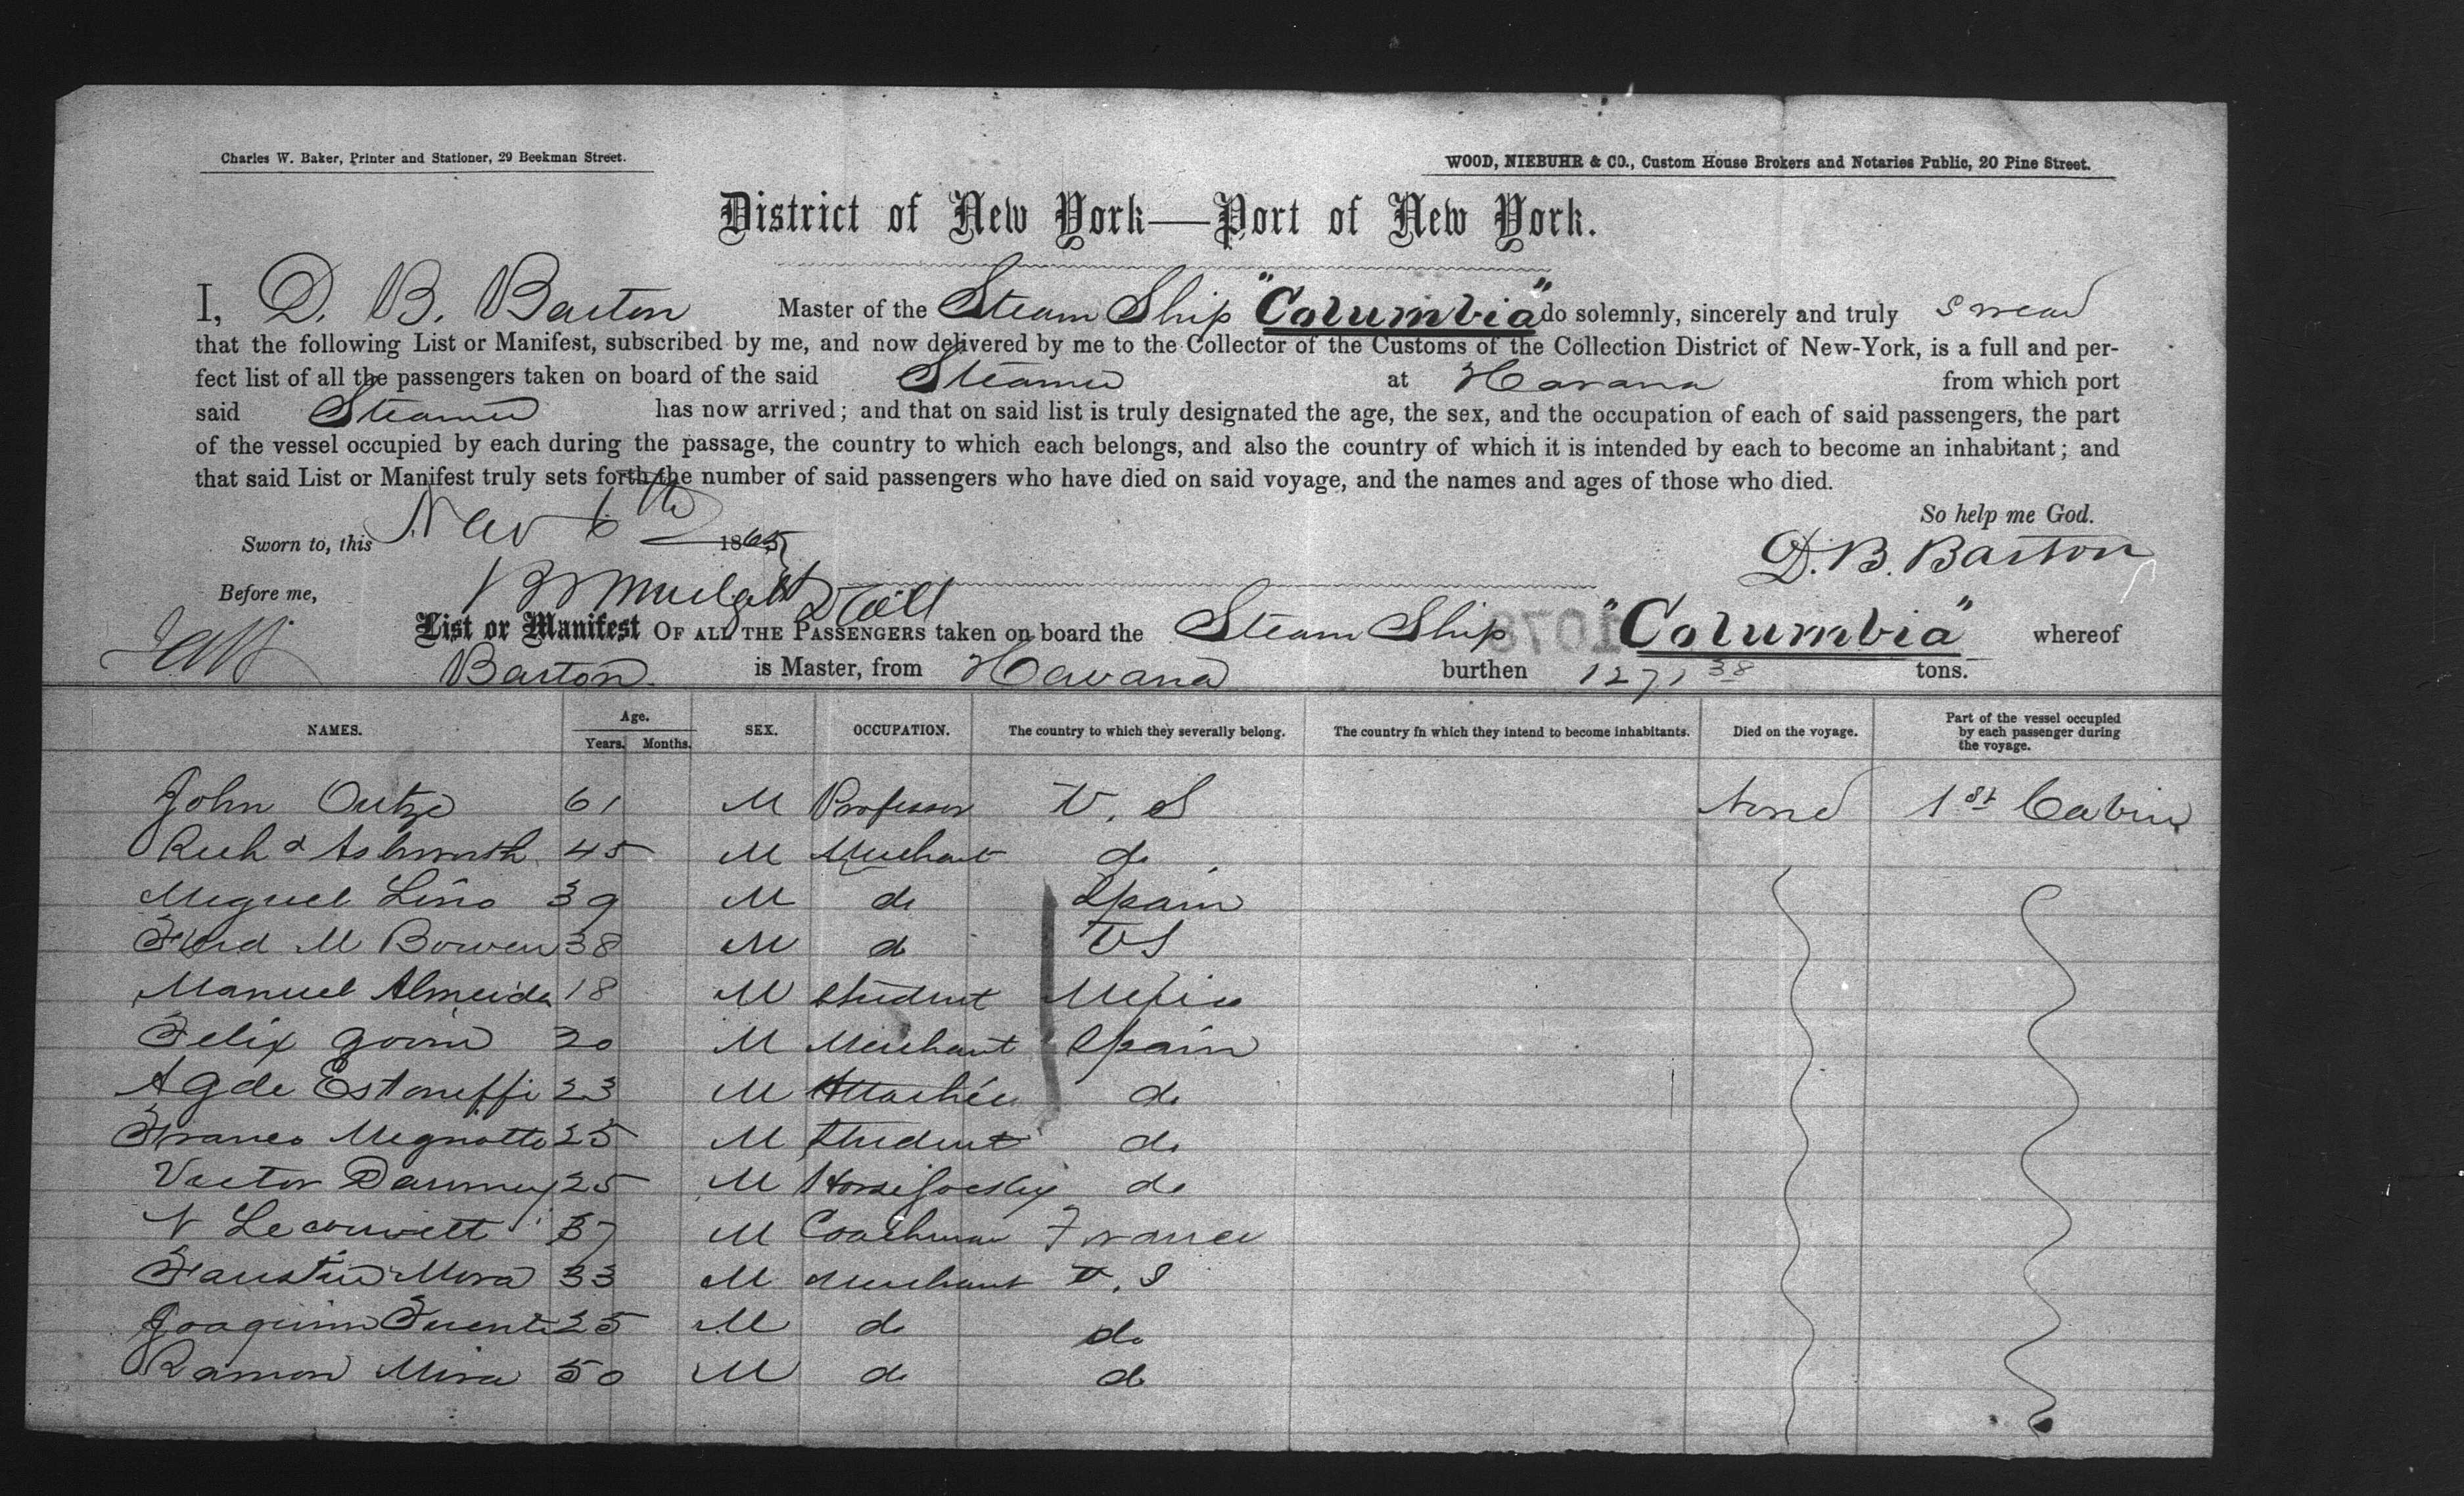 Charles W. Baker, Printer and Stationer, 29 Beekman Street.
WOOD, NIEBUHR & CO., Custom House Brokers and Notaries Public, 20 Pine Street.
District of New York—Port of New York.
I, D. B. Barton Master of the Steam Ship "Columbia" do solemnly, sincerely and truly swear
that the following List or Manifest, subscribed by me, and now delivered by me to the Collector of the Customs of the Collection District of New-York, is a full and per-
fect list of all the passengers taken on board of the said Steamer at Havana from which port
said Steamer has now arrived; and that on said list is truly designated the age, the sex, and the occupation of each of said passengers, the part
of the vessel occupied by each during the passage, the country to which each belongs, and also the country of which it is intended by each to become an inhabitant; and
that said List or Manifest truly sets forth the number of said passengers who have died on said voyage, and the names and ages of those who died.
So help me God.
Sworn to, this Nov 6th 1865
D. B. Barton
Before me,
List or Manifest OF ALL THE PASSENGERS taken on board the Steam Ship "Columbia" whereof
Barton is Master, from Havana burthen 1271 38 tons.
NAMES. Age. Years. Months. SEX. OCCUPATION. The country to which they severally belong. The country in which they intend to become inhabitants. Died on the voyage. Part of the vessel occupied by each passenger during the voyage.
John 61 M Professor U. S None 1st Cabin
Richd Ashworth 45 M Merchant do
Miguel Lino 39 M do Spain
Ferd M Bowen 38 M do US
Manuel Almeida 18 M Student Mexico
Felix 20 M Merchant Spain
A G de 23 M Attachée do
Franco 25 M Student do
Victor 25 M Horse Jockey do
N 37 M Coachman France
Faustin Mora 33 M Merchant U. S
Joaquim Fuente 25 M do do
Ramon Mira 50 M do do